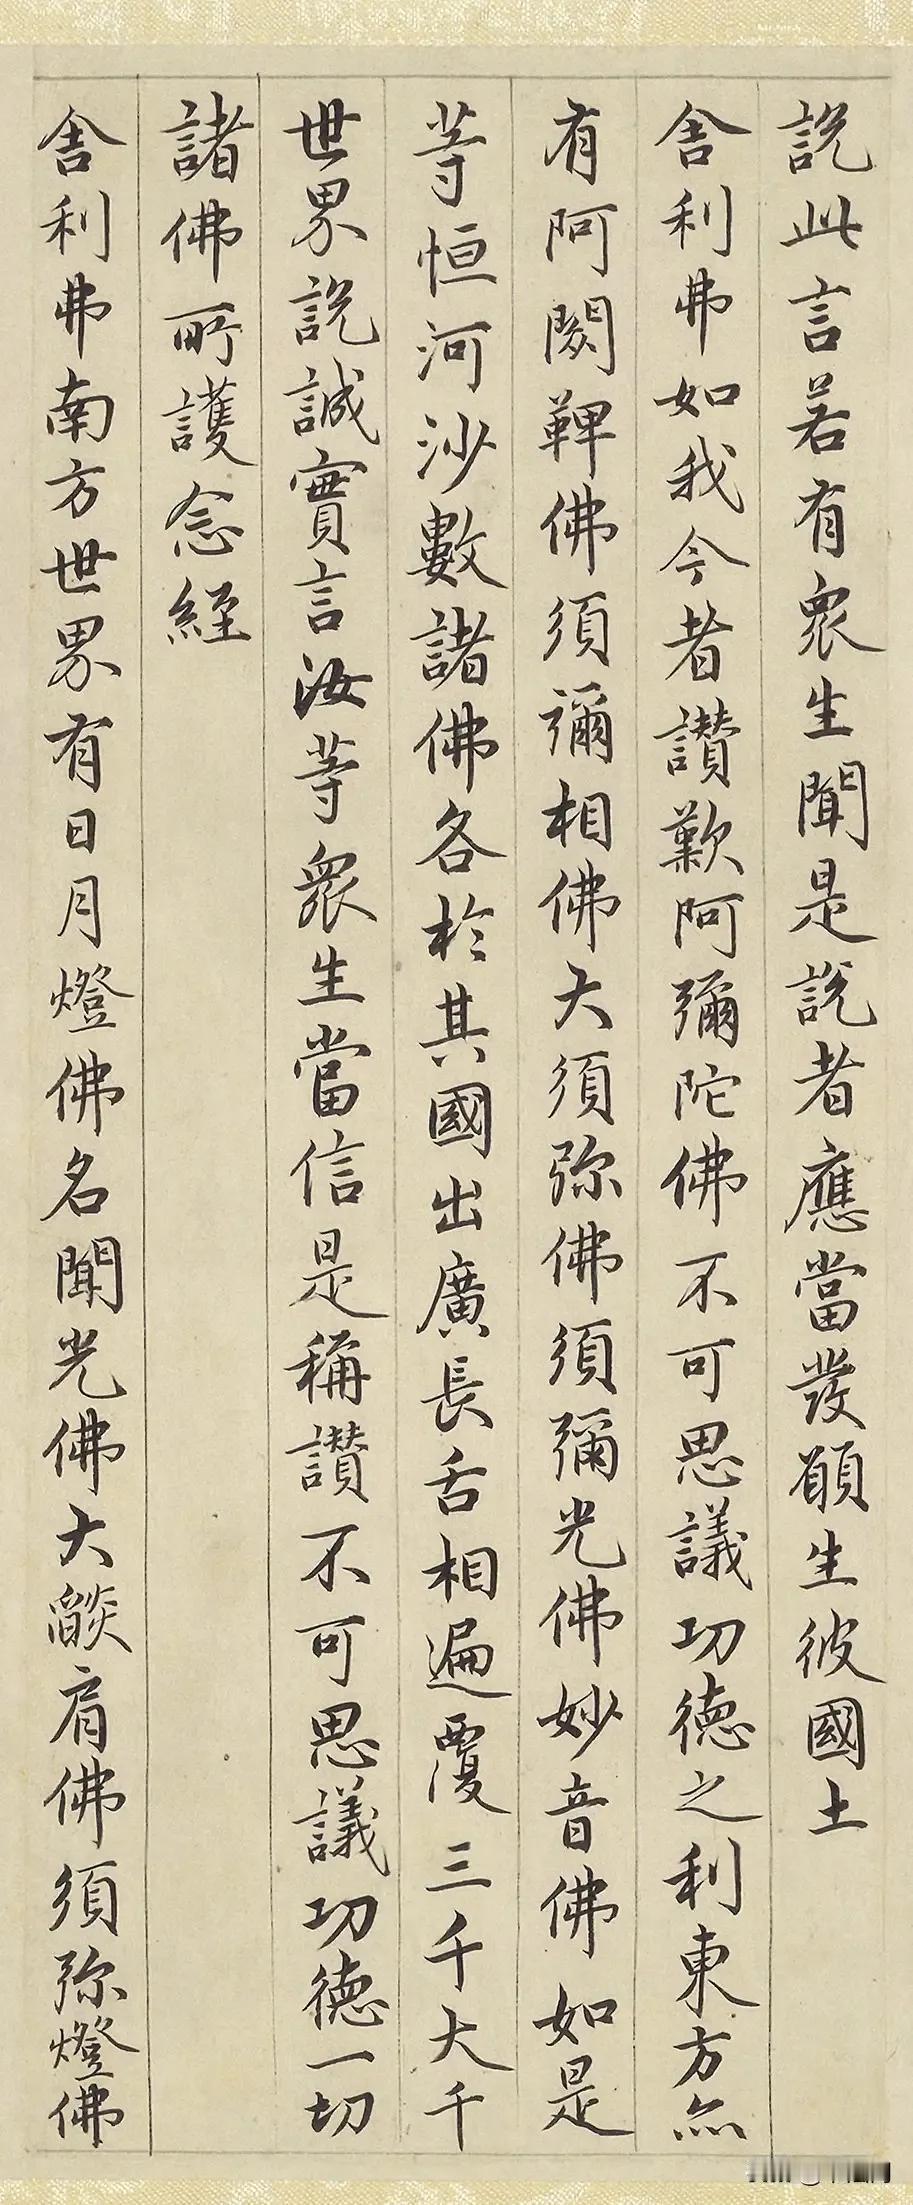 說此言若有衆生聞是說者應當發願生彼國土
舍利弗如我今者讃歎阿彌陀佛不可思議功德之利東方亦
有阿閦鞞佛須彌相佛大須弥佛須彌光佛妙音佛如是
等恒河沙數諸佛各於其國出廣長舌相遍覆三千大千
世界說誠實言汝等衆生當信是稱讃不可思議功德一切
諸佛所護念經
舍利弗南方世界有日月燈佛名聞光佛大燄肩佛須弥燈佛